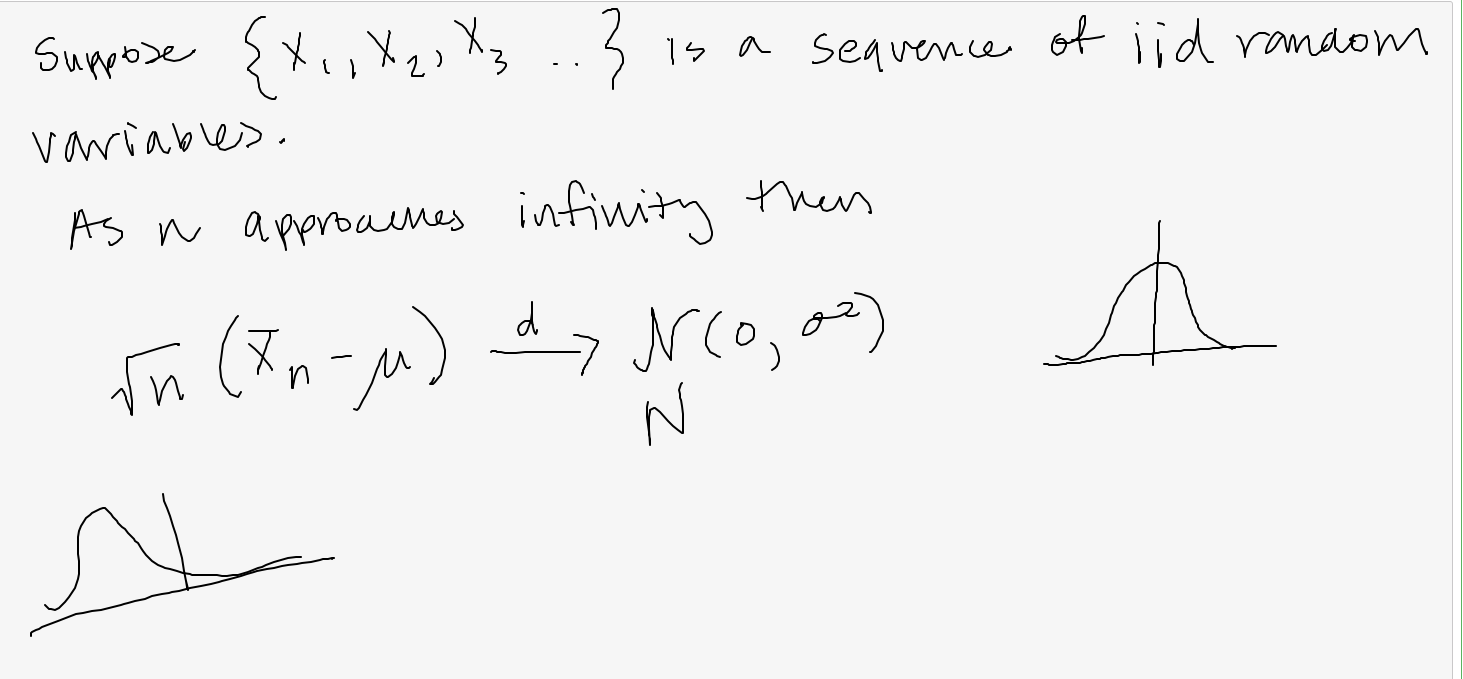 Suppose {X₁, X₂, X₃ ...} is a sequence of iid random
variables.
As n approaches infinity then
√n (X̄ₙ - μ) →ᵈ 𝒩(0, σ²)
N